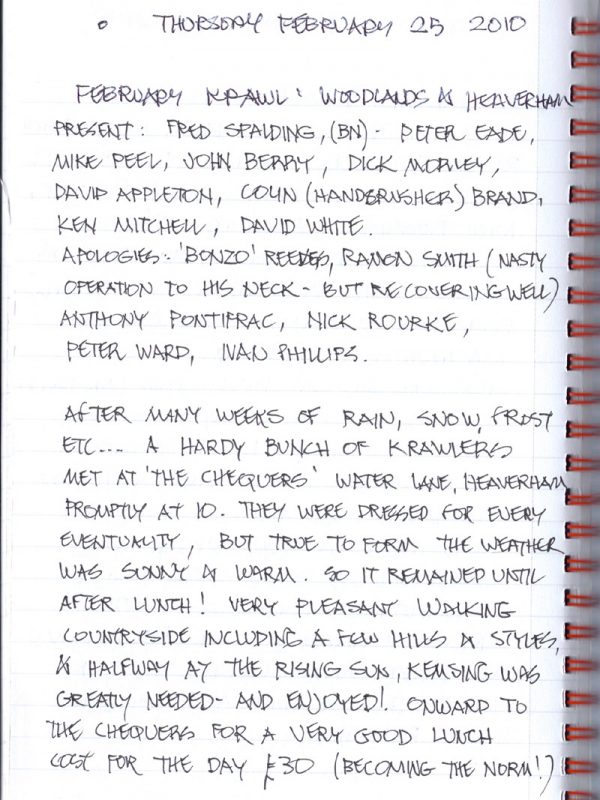 THURSDAY FEBRUARY 25 2010
FEBRUARY KRAWL: WOODLANDS & HEAVERHAM
PRESENT: FRED SPALDING, (BN) - PETER EADE,
MIKE PEEL, JOHN BERRY, DICK MORLEY,
DAVID APPLETON, COLIN (HANDBRUSHER) BRAND,
KEN MITCHELL, DAVID WHITE.
APOLOGIES: 'BONZO' REEVES, RAMON SMITH (NASTY
OPERATION TO HIS NECK - BUT RECOVERING WELL)
ANTHONY PONTIFRAC, NICK ROURKE,
PETER WARD, IVAN PHILLIPS.
AFTER MANY WEEKS OF RAIN, SNOW, FROST
ETC.... A HARDY BUNCH OF KRAWLERS
MET AT 'THE CHEQUERS' WATER LANE, HEAVERHAM
PROMPTLY AT 10. THEY WERE DRESSED FOR EVERY
EVENTUALITY, BUT TRUE TO FORM THE WEATHER
WAS SUNNY & WARM. SO IT REMAINED UNTIL
AFTER LUNCH! VERY PLEASANT WALKING
COUNTRYSIDE INCLUDING A FEW HILLS & STYLES,
& HALFWAY AT THE RISING SUN, KEMSING WAS
GREATLY NEEDED - AND ENJOYED! ONWARD TO
THE CHEQUERS FOR A VERY GOOD LUNCH
COST FOR THE DAY £30 (BECOMING THE NORM!)